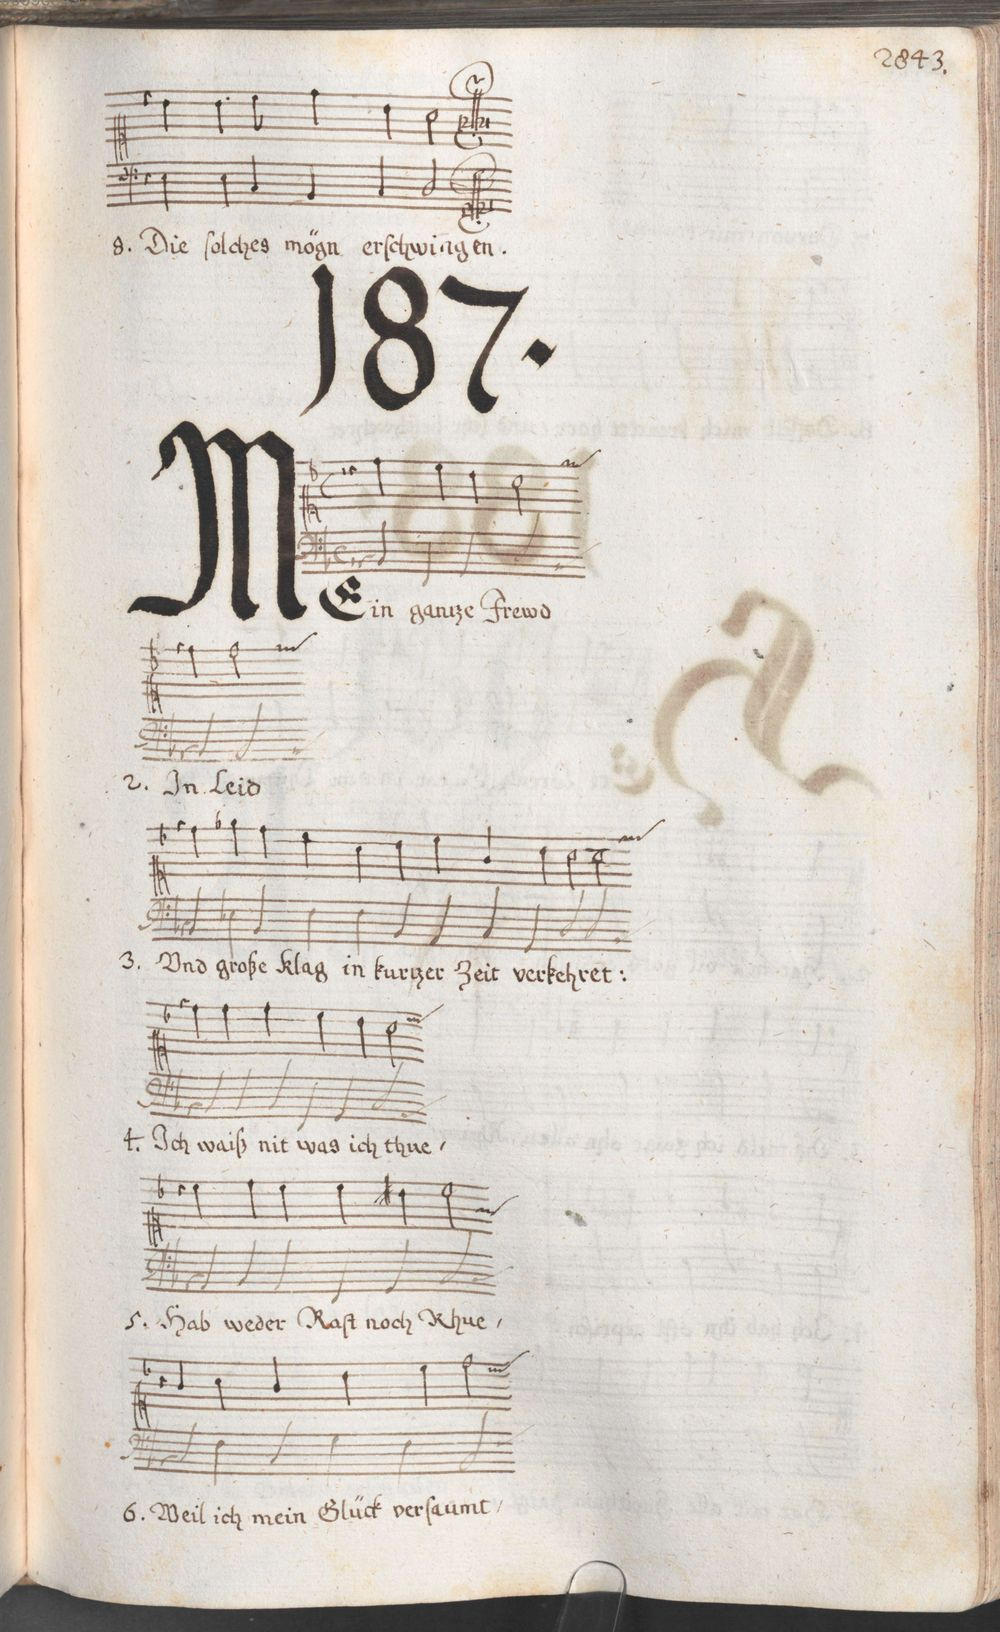 2843.
8. Die solches mögn erschwingen.
187.
MEin gantze Frewd
2. In Leid
3. Vnd große klag in kurtzer Zeit verkehret:
4. Ich waiß nit was ich thue,
5. Hab weder Rast noch Rhue,
6. Weil ich mein Glück versaumt,